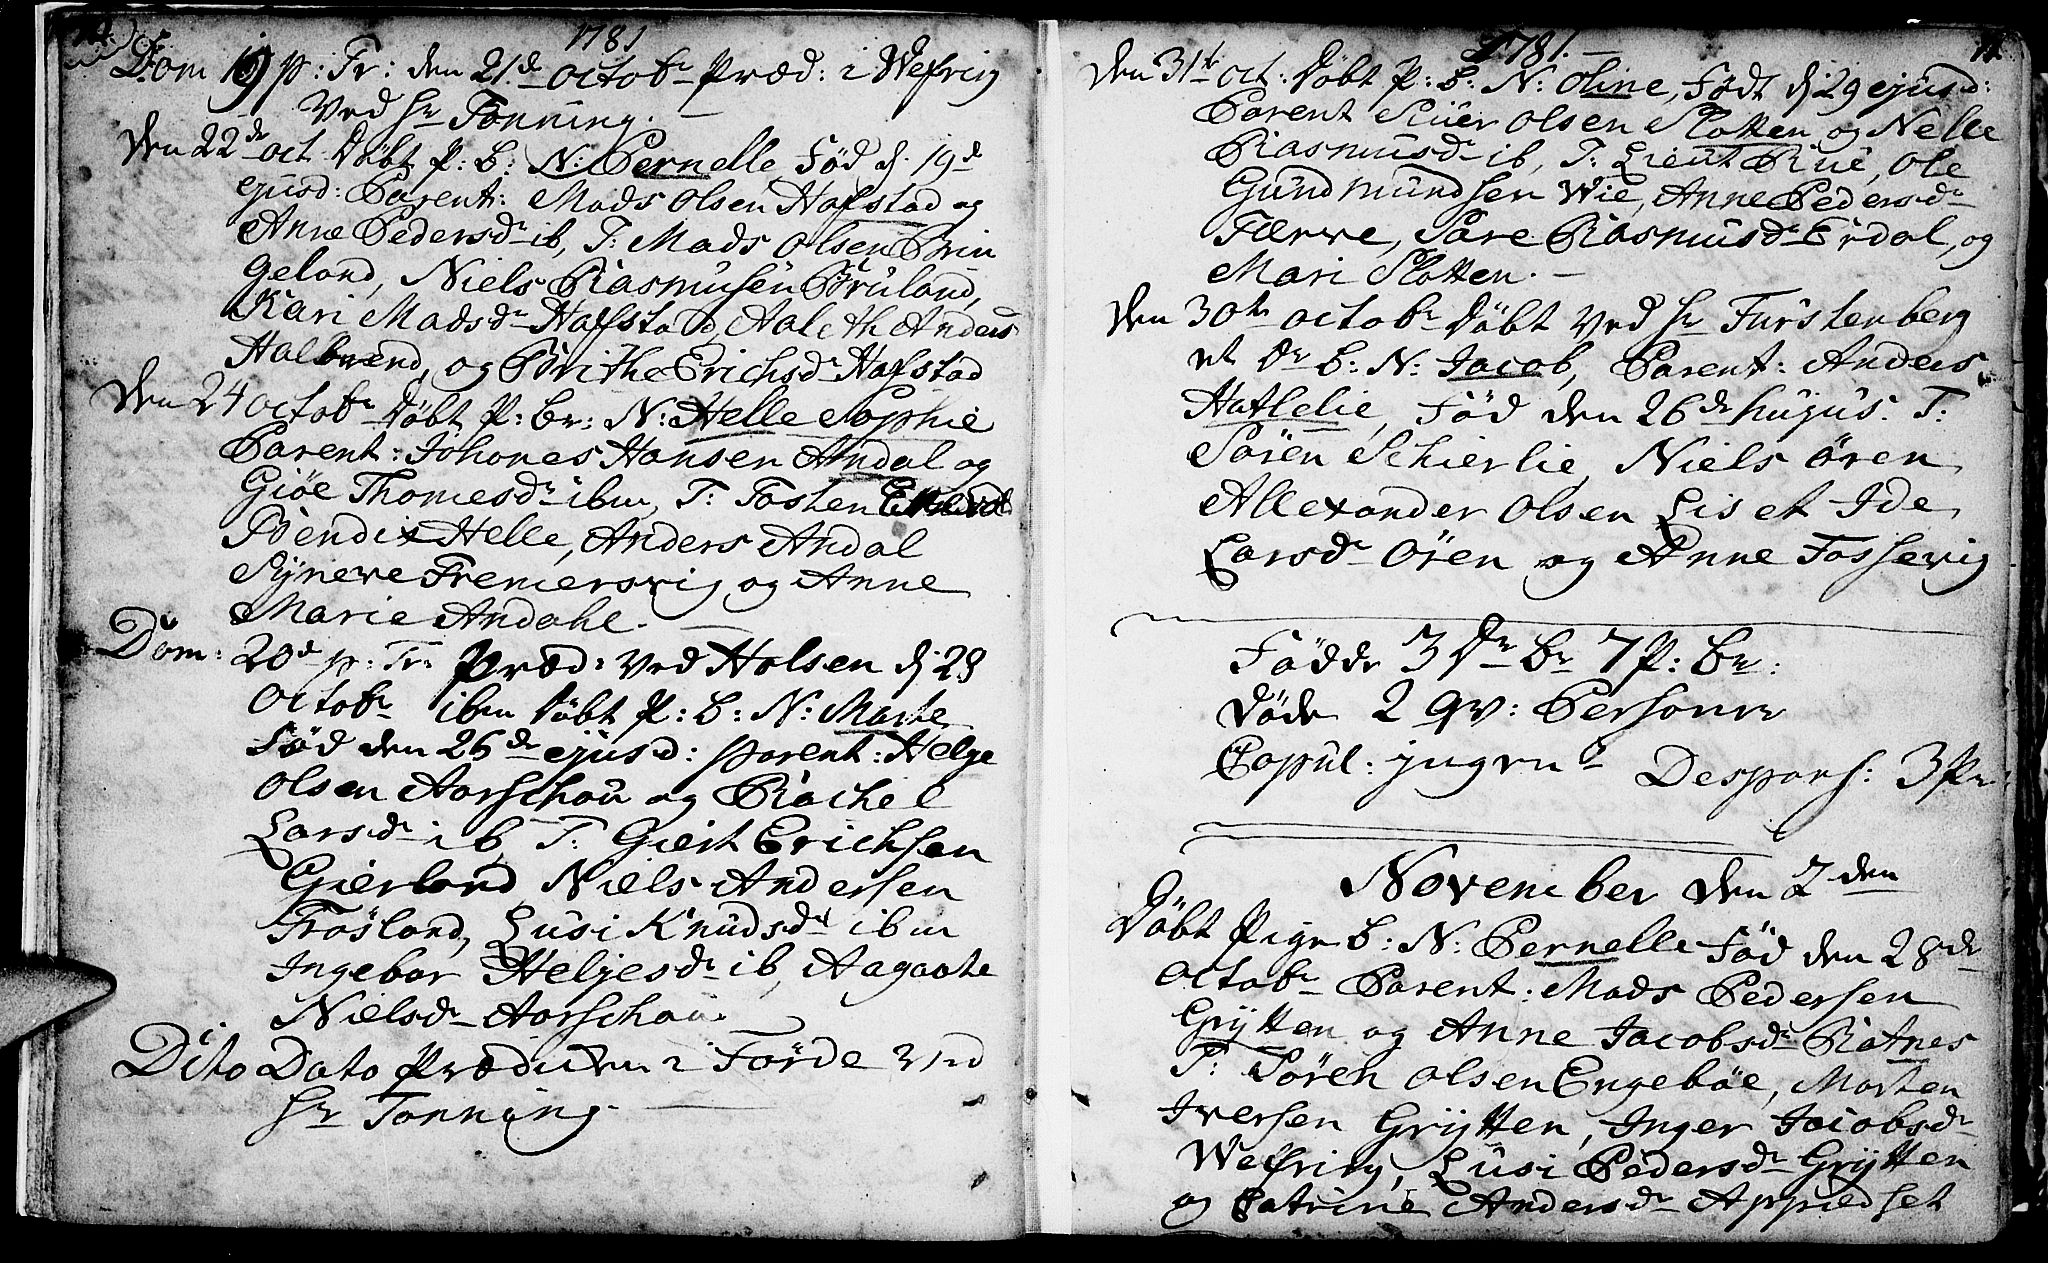 1781
Dom 19 p: Tr: den 21de octobr Præd: i Wefring
Ved Hr Tonning.
Den 22de oct. Döbt P: B: N: Pernelle, Föd d. 19de
ejusd: Parent: Mads Olsen Hafstad og
Anne Pedersdr ib, T: Mads Olsen Brin
geland, Niels Rasmusen Bruland,
Kari Madsdr Hafstad, Aaleth Anders
Halbrend, og Brithe Erichsdr Hafstad
Den 24 octobr Döbt P: Br: N: Helle Sophie
Parent: Johanes Hansen Andal og
Giöe Thomesdr ibm, T: Tosten
Bendix Helle, Anders Andal
Syneve Fremersvig og Anne
Marie Andahl.
Dom: 20de p: Tr: Præd: Ved Holsen d 28
Octobr ibm Döbt P: B: N: Marte
Föd den 26de ejusd: parent: Helge
Olsen Aarschou og Rachel
Larsdr ib, T: Giert Erichsen
Gierland Niels Andersen
Frösland, Lusi Knudsdr ibm
Ingebor Heljesdr ib, Aagaate
Nielsdr Aarschou.
Dito Dato Prædiken i Förde Ved
Hr Tonning.
1781.
Den 31te oct: Döbt P: B: N: Oline, Födt d 29 ejusd:
Parent Siuer Olsen Slotten og Nelle
Rasmusdr ib, T: Lieut Rue, Ole
Gundmundsen Wie, Anne Pedersdr
Færve, Sare Rasmusdr Erdal, og
Mari Slotten.
Den 30te octobr Döbt Ved Hr Furstenberg
et Dr B: N: Jacob, Parent: Anders
Hatlelie, Föd den 26de hujus. T:
Sören Schierlie, Niels Ören
Allexander Olsen Lis et Ide
Larsdr Ören og Anne Fossevig
Födde 3 Dr Br 7 P: Br:
Döde 2 qv: Personer
Copul: ingen Despons: 3 Pr
November den 2den
Döbt Pige B: N: Pernelle Föd den 28de
Octobr Parent: Mads Pedersen
Grytten og Anne Jacobsdr Ratnes
T: Sören Olsen Engebøe, Morten
Iversen Grytten, Inger Jacobsdr
Wefring, Lusi Pedersdr Grytten
og Catrine Andersdr Appredset